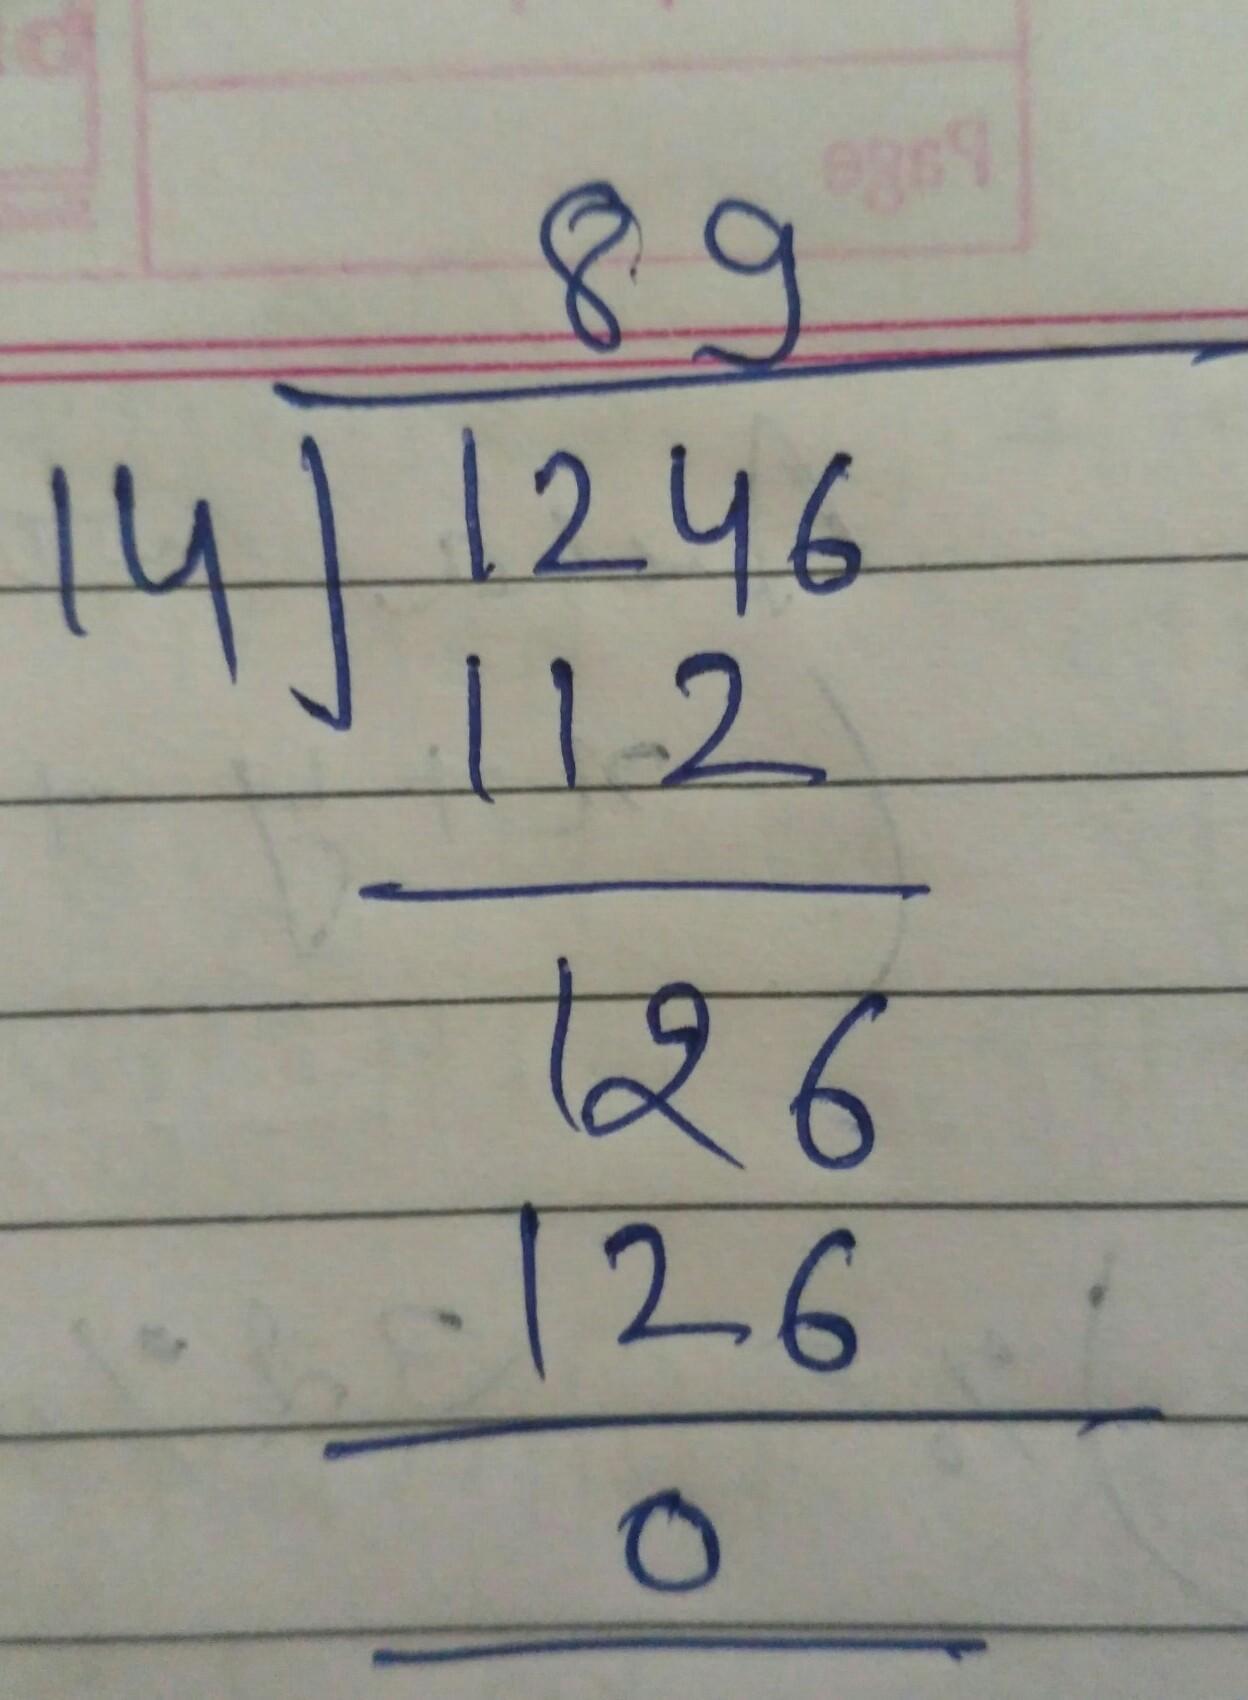 Page
89
14 1246
112
126
126
0